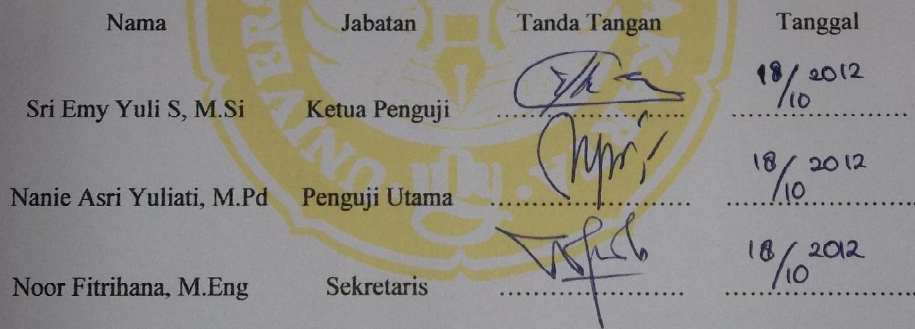 Nama Jabatan Tanda Tangan Tanggal
Sri Emy Yuli S, M.Si Ketua Penguji .................... 18/10 2012
Nanie Asri Yuliati, M.Pd Penguji Utama .................... 18/10 2012
Noor Fitrihana, M.Eng Sekretaris .................... 18/10 2012